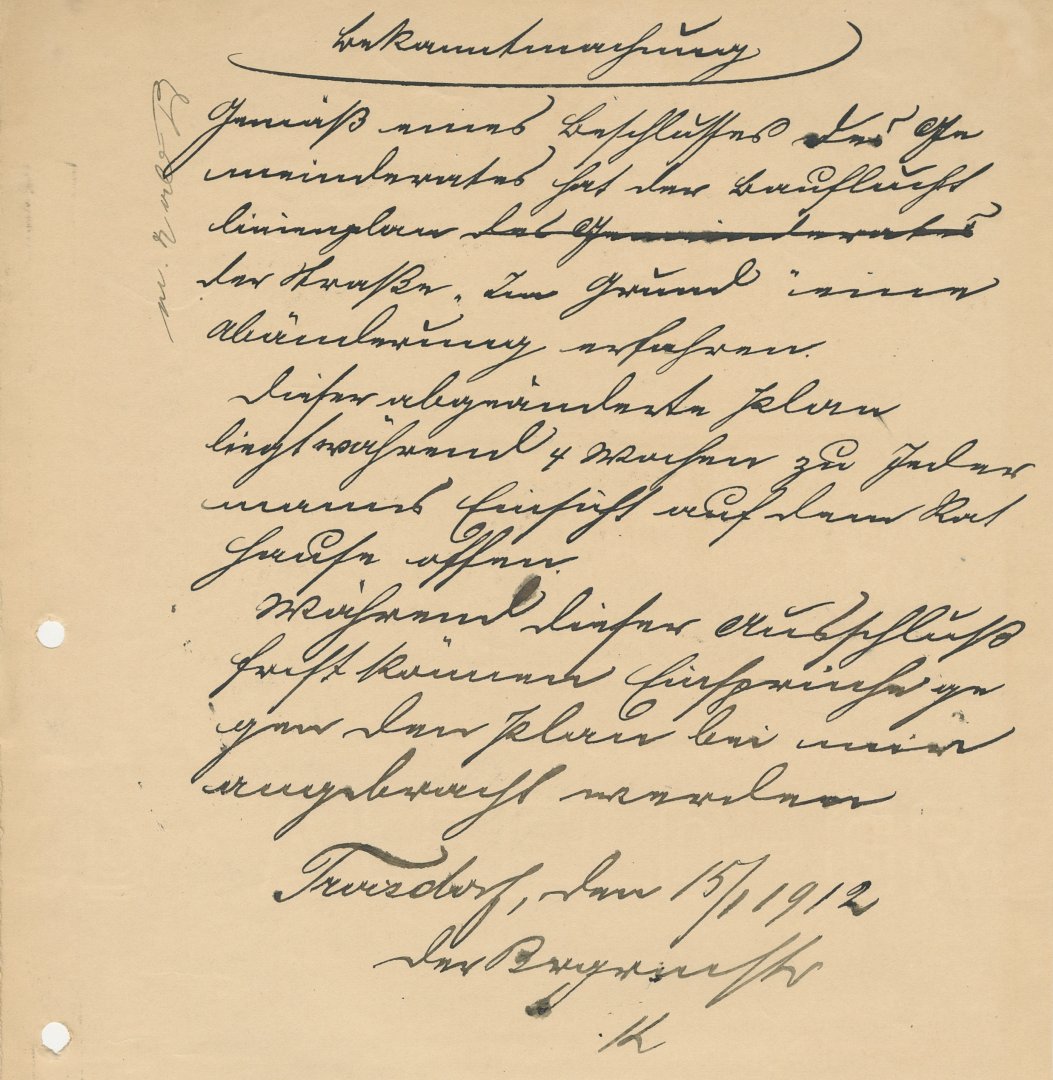 Bekanntmachung
Gemäß eines Beschlusses des Ge
meinderates hat der Bauflucht
linienplan des Gemeinderates
der Straße „Im Grund" eine
Abänderung erfahren.
Dieser abgeänderte Plan
liegt während 4 Wochen zu Jeder
manns Einsicht auf dem Rat
hause offen.
Während dieser Ausschluß
frist können Einsprüche ge
gen den Plan bei mir
angebracht werden
den 15/1 1912
Der Brgrmstr
K